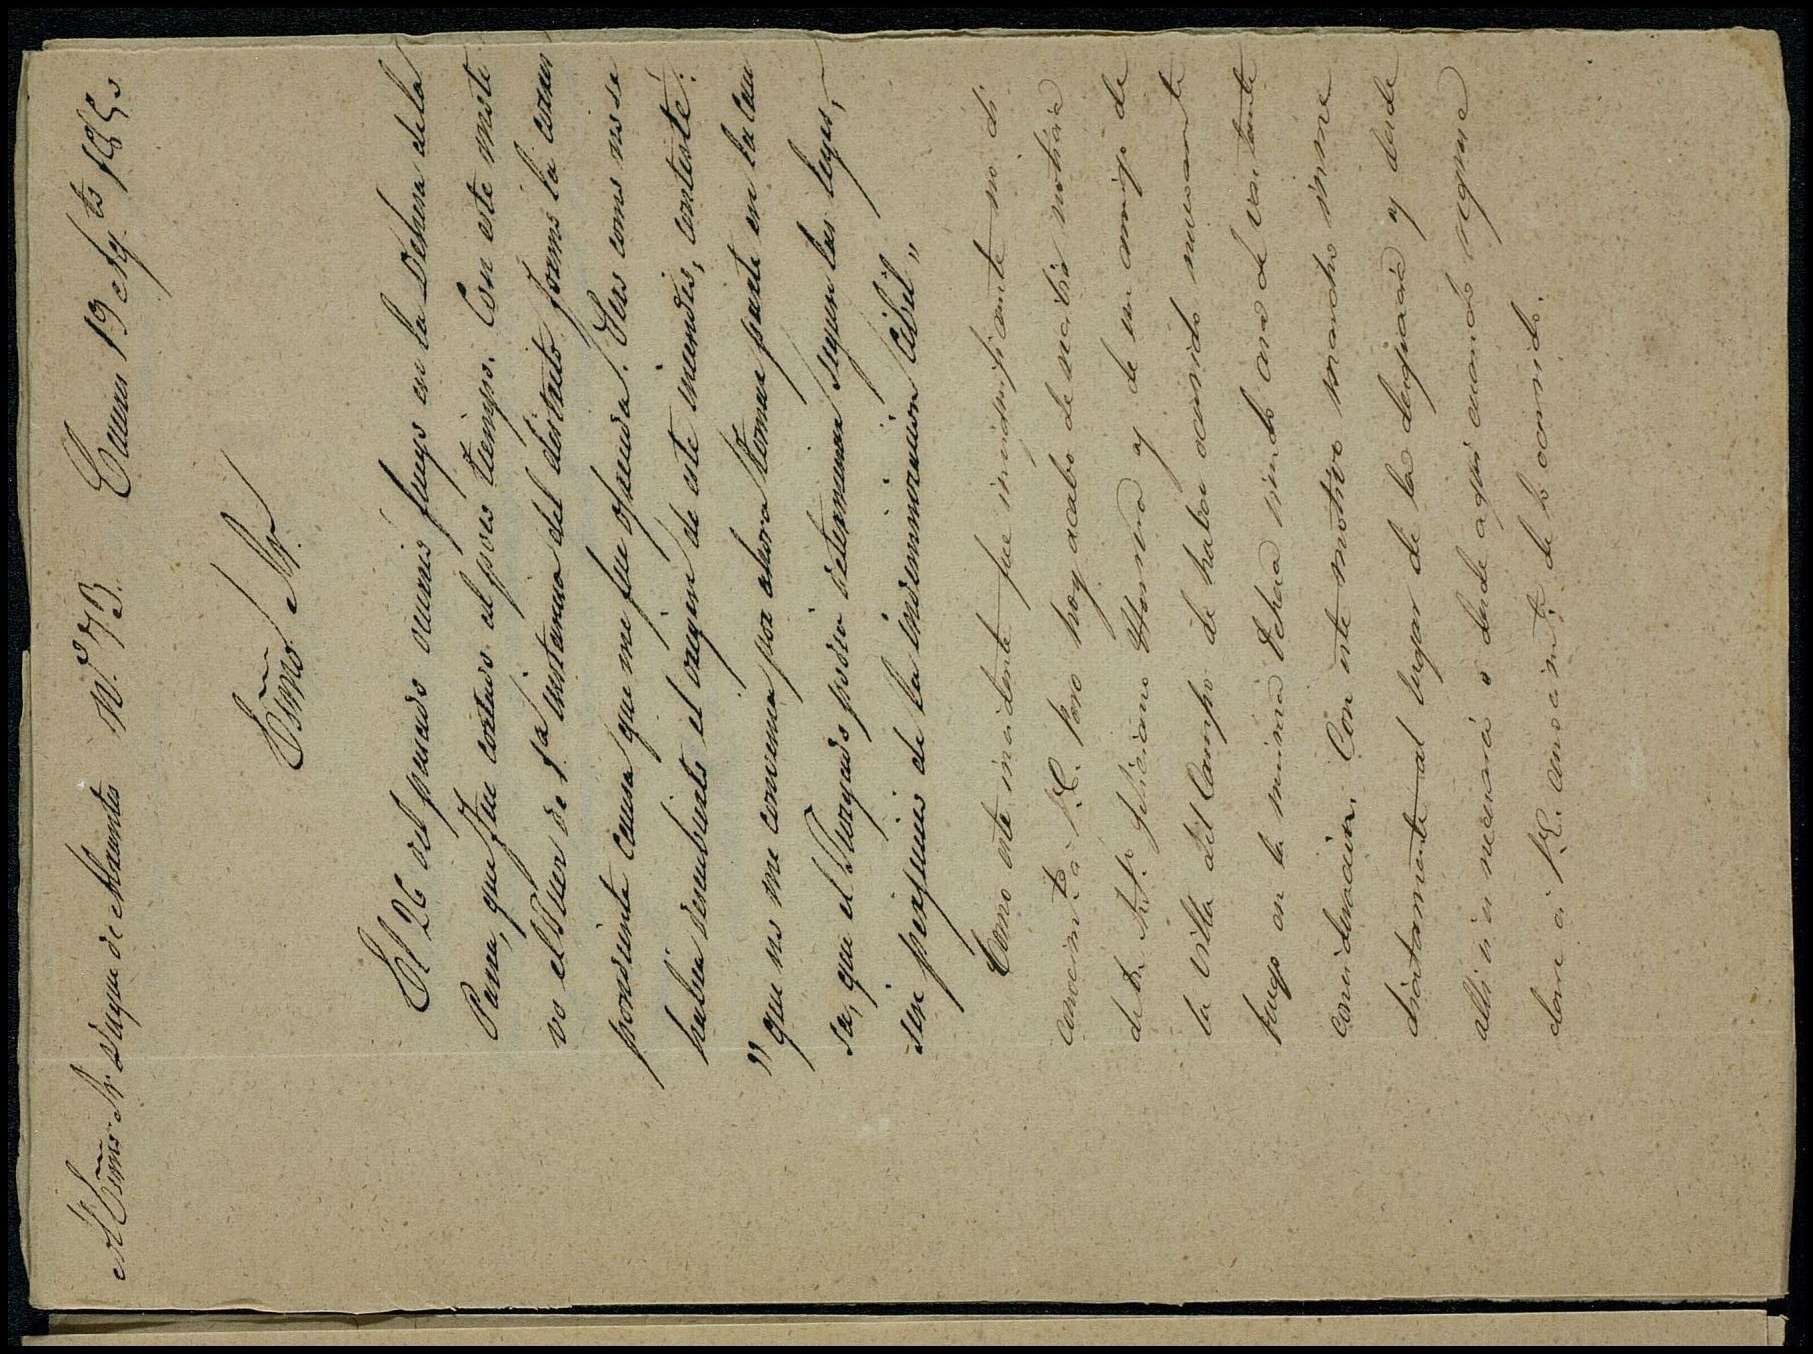 Al Esmo. Sr. Duque de Abrantes Nº 73. Cáceres 19 Ag.to 1885
Esmo. Sr.
El 26 del pasado ocurrió fuego en la Dehesa de la
Parra, que fue cortado al poco tiempo. Con este moti-
vo el Juez de 1ª instancia del distrito formó la corres-
pondiente causa que me fue ofrecida. Mas como no se
habia descubierto el origen de este incendio, contesté:
"que no me convenia por ahora tomar parte en la cau
sa, que el Juzgado podia determinar segun las leyes,
sin perjuicio de la indemnizacion Cibil"
Como este incidente fue insignificante no di
conocimto. a V.E. Pero hoy acabo de recibir noticia
de Feliciano y de un amigo de
la villa del Campo de haber ocurrido nuevamente
fuego en la misma Dehesa siendo ora de bastante
consideracion. Con este motivo marcho inme
diatamente al lugar de la desgracia y desde
alli si es necesario o desde aqui cuando regrese
daré á V.E. conocimto. de lo ocurrido.